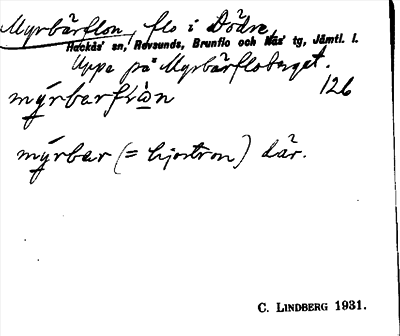 Myrbärflon, flo i Dödre,
Hackås' sn, Revsunds, Brunflo och Näs' tg, Jämtl. l.
Uppe på Myrbärfloberget.
126
mýrbarflơn
mýrbar (= hjortron) där.
C. LINDBERG 1931.